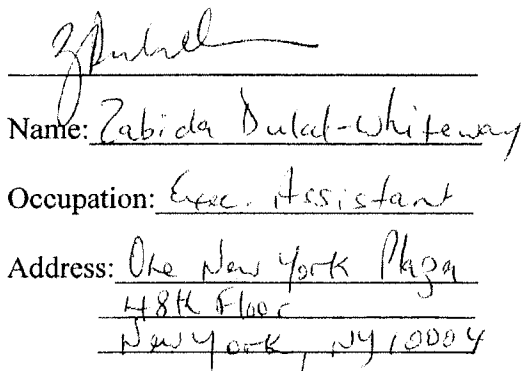 Name: Zabida Dulat-Whiteway
Occupation: Exec. Assistant
Address: One New York Plaza
48th Floor
New York, NY 10004